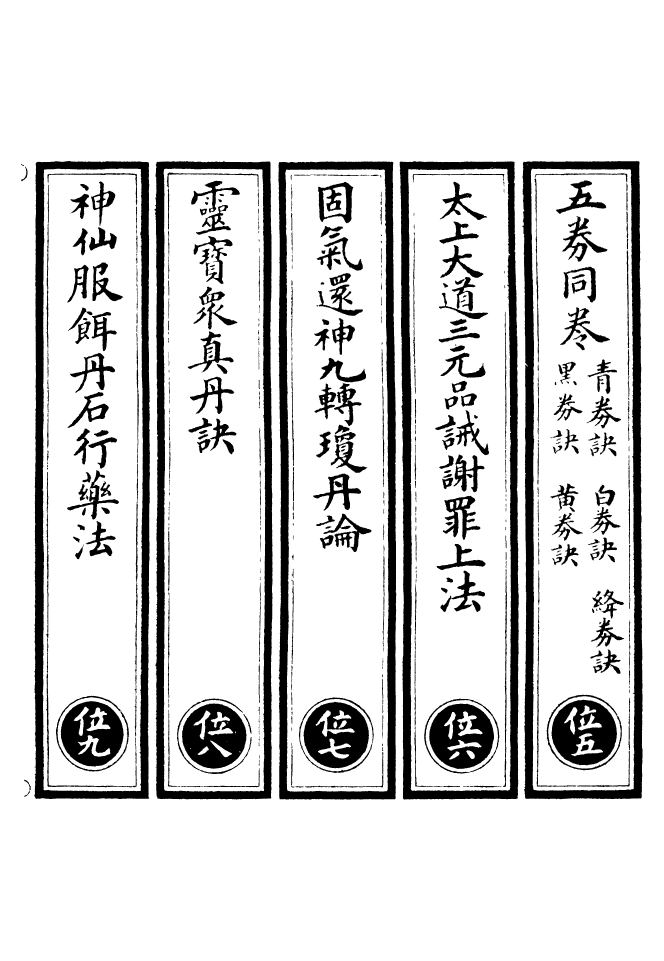 五劵同卷
青劵訣 白劵訣 絳劵訣
黑劵訣 黃劵訣
位五
太上大道三元品誡謝罪上法
位六
固氣還神九轉瓊丹論
位七
靈寶眾真丹訣
位八
神仙服餌丹石行藥法
位九